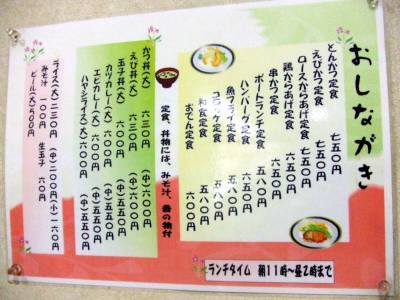 おしながき
とんかつ定食 七五〇円
えびかつ定食 七五〇円
ロースからあげ定食 七五〇円
鶏からあげ定食 六五〇円
串かつ定食 六五〇円
ポートランチ定食 五八〇円
ハンバーグ定食 六五〇円
魚フライ定食 五八〇円
コロッケ定食 五八〇円
和食定食 五八〇円
おでん定食 六〇〇円
定食、丼物には、みそ汁、香の物付
かつ丼(大) 六三〇円 (中)六〇〇円
えび丼(大) 六三〇円 (中)六〇〇円
玉子丼(大) 六〇〇円 (中)五五〇円
カツカレー(大) 六〇〇円 (中)五五〇円
エビカレー(大) 六〇〇円 (中)五五〇円
ハヤシライス(大) 六〇〇円 (中)五五〇円
ライス(大)二三〇円 (中)二〇〇円 (小)一六〇円
みそ汁 一〇〇円 生玉子 六〇円
ビール(大)500円
ランチタイム 朝11時〜昼2時まで